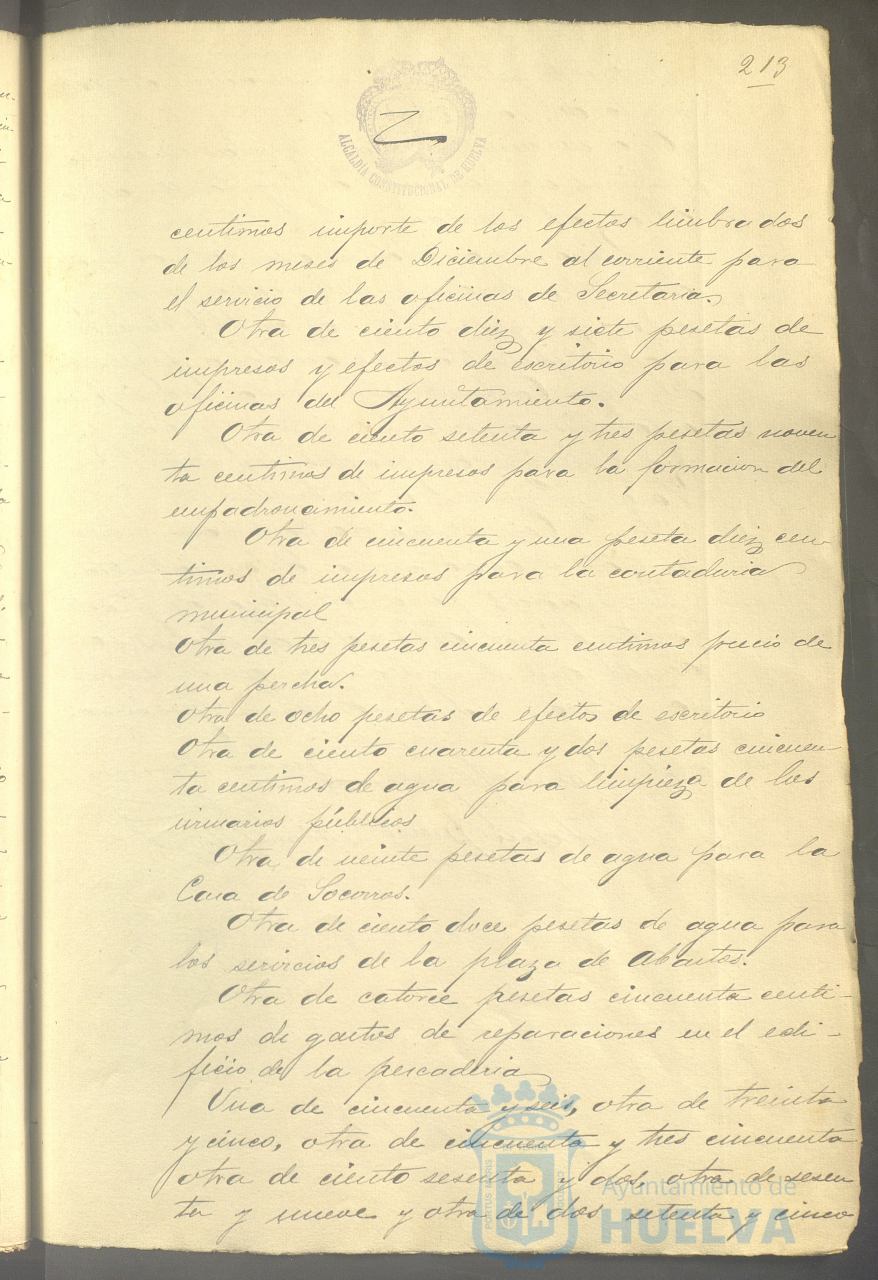 213
ALCALDÍA CONSTITUCIONAL DE HUELVA
centimos importe de los efectos timbrados
de los meses de Diciembre al corriente para
el servicio de las oficinas de Secretaria.
Otra de ciento diez y siete pesetas de
impresos y efectos de escritorio para las
oficinas del Ayuntamiento.
Otra de ciento setenta y tres pesetas noven
ta centimos de impresos para la formacion del
empadronamiento.
Otra de cincuenta y una peseta diez cen-
timos de impresos para la contaduria
municipal
Otra de tres pesetas cincuenta centimos precio de
una percha.
Otra de ocho pesetas de efectos de escritorio
Otra de ciento cuarenta y dos pesetas cincuen-
ta centimos de agua para limpieza de los
urinarios públicos
Otra de veinte pesetas de agua para la
Casa de Socorros.
Otra de ciento doce pesetas de agua para
los servicios de la plaza de Abastos.
Otra de catorce pesetas cincuenta centi-
mos de gastos de reparaciones en el edi-
ficio de la pescaderia
Una de cincuenta y seis, otra de treinta
y cinco, otra de cincuenta y tres cincuenta
otra de ciento sesenta y dos, otra de sesen
ta y nueve y otra de dos setenta y cinco
Ayuntamiento de
HUELVA